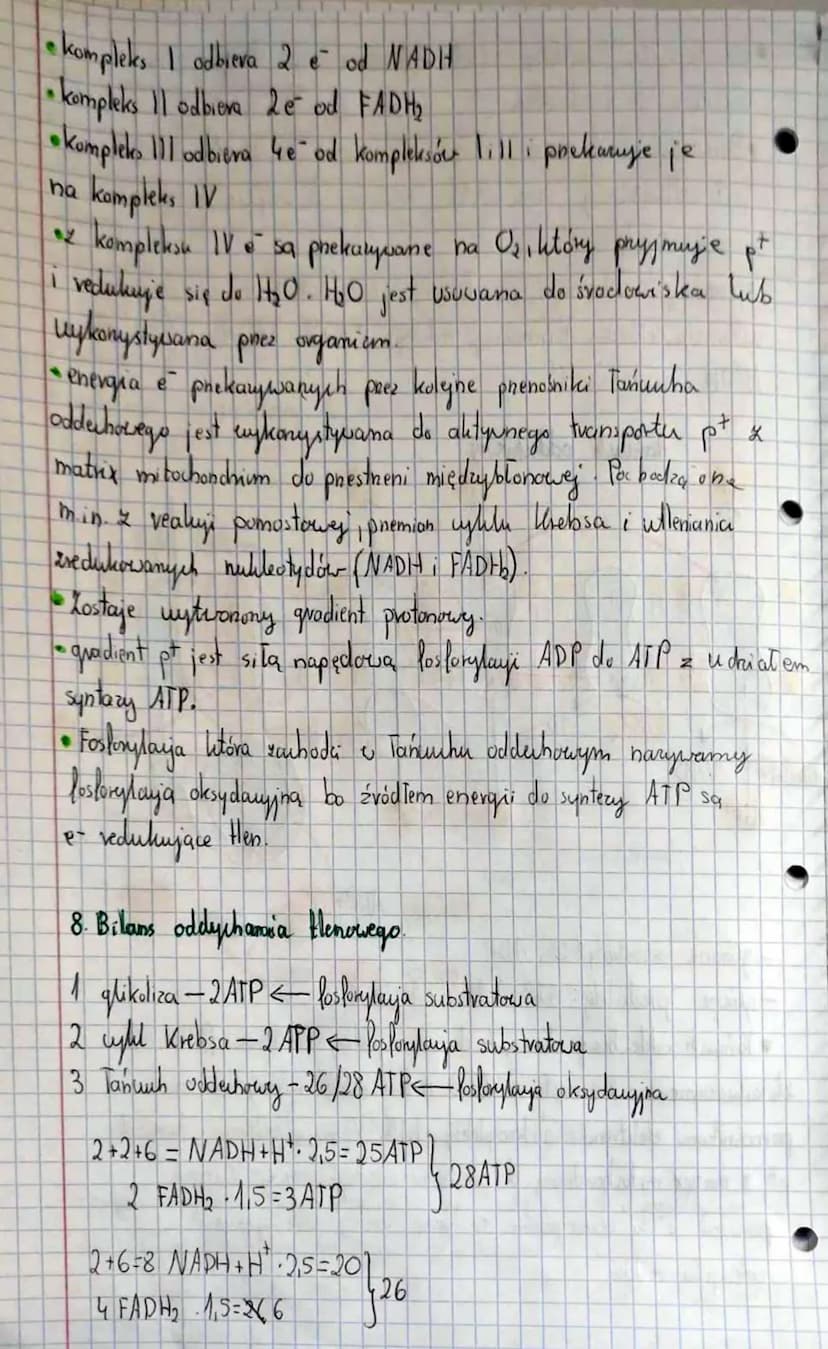 • kompleks I odbiera 2 e⁻ od NADH
• kompleks II odbiera 2e⁻ od FADH₂
• kompleks III odbiera 4e⁻ od kompleksów I i II i przekazuje je
na kompleks IV
• z kompleksu IV e⁻ są przekazywane na O₂, który przyjmuje p⁺
i redukuje się do H₂O. H₂O jest usuwana do środowiska lub
wykorzystywana przez organizm.
• energia e⁻ przekazywanych przez kolejne przenośniki łańcucha
oddechowego jest wykorzystywana do aktywnego transportu p⁺ z
matrix mitochondrium do przestrzeni międzybłonowej. Pochodzą one
m.in. z reakcji pomostowej, przemian cyklu Krebsa i utleniania
zredukowanych nukleotydów (NADH i FADH₂).
• Zostaje wytworzony gradient protonowy.
• gradient p⁺ jest siłą napędową fosforylacji ADP do ATP z udziałem
syntazy ATP.
• Fosforylacja która zachodzi w łańcuchu oddechowym nazywamy
fosforylacją oksydacyjną bo źródłem energii do syntezy ATP są
e⁻ redukujące tlen.
8. Bilans oddychania tlenowego.
1 glikoliza – 2 ATP ← fosforylacja substratowa
2 cykl Krebsa – 2 ATP ← fosforylacja substratowa
3 łańcuch oddechowy – 26/28 ATP ← fosforylacja oksydacyjna
2+2+6 = NADH+H⁺ · 2,5 = 25ATP
2 FADH₂ · 1,5 = 3 ATP } 28 ATP
2+6=8 NADH+H⁺ · 2,5 = 20
4 FADH₂ · 1,5 = 6 } 26